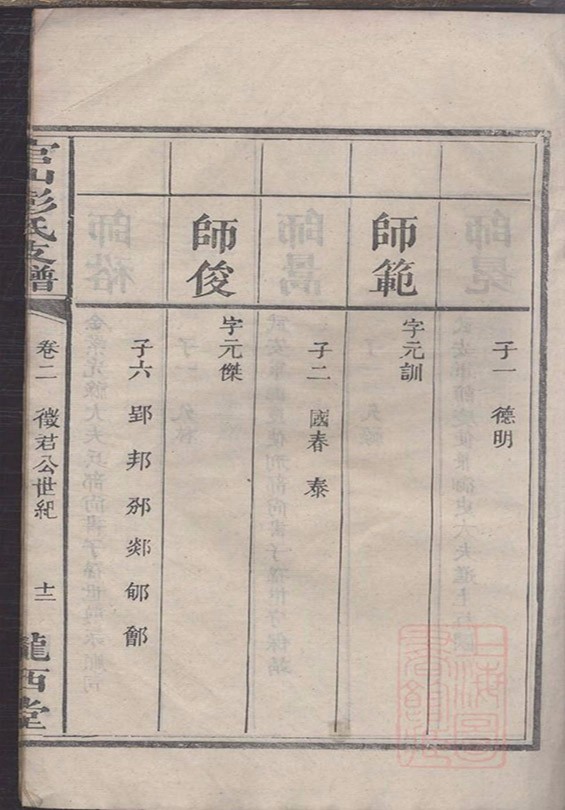 子一 德明
師範
字元訓
子二 國春 泰
師俊
字元傑
子六 郢 邦 邠 郯 郇 鄶
官山彭氏支譜
卷二 徵君公世紀 十二
隴西堂